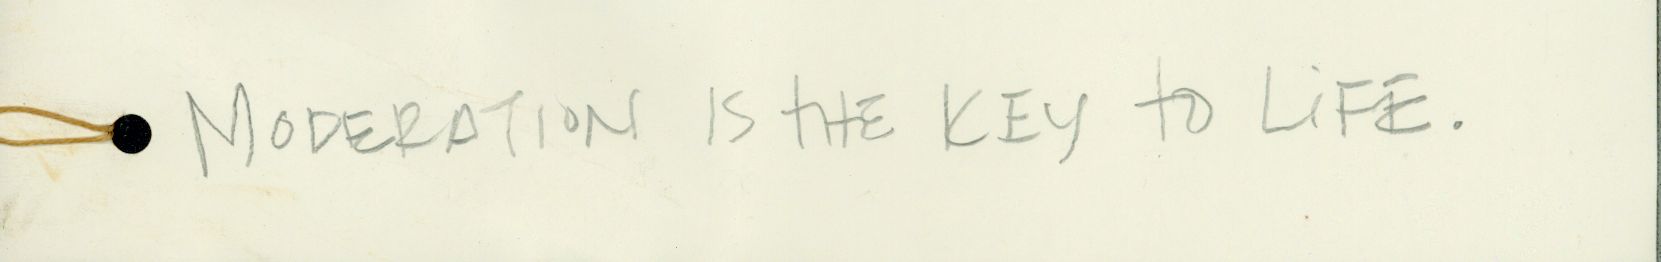 MODERATION IS tHE KEY to LiFE.